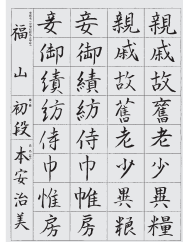 親戚故舊老少異糧
親戚故舊老少異粮
妾御績紡侍巾帷房
妾御績紡侍巾帷房
福山 初段 本安治美